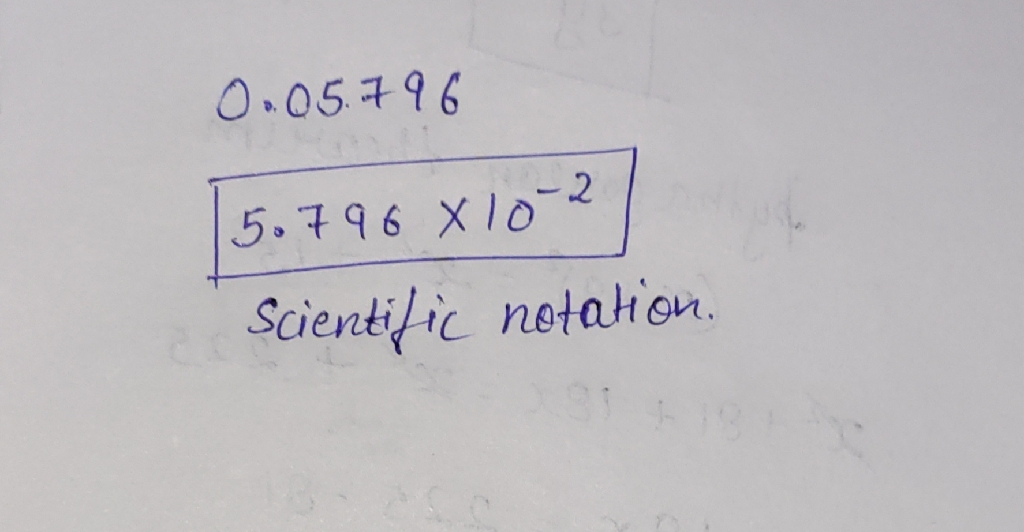 0.05.796
5.796 X 10⁻²
Scientific notation.